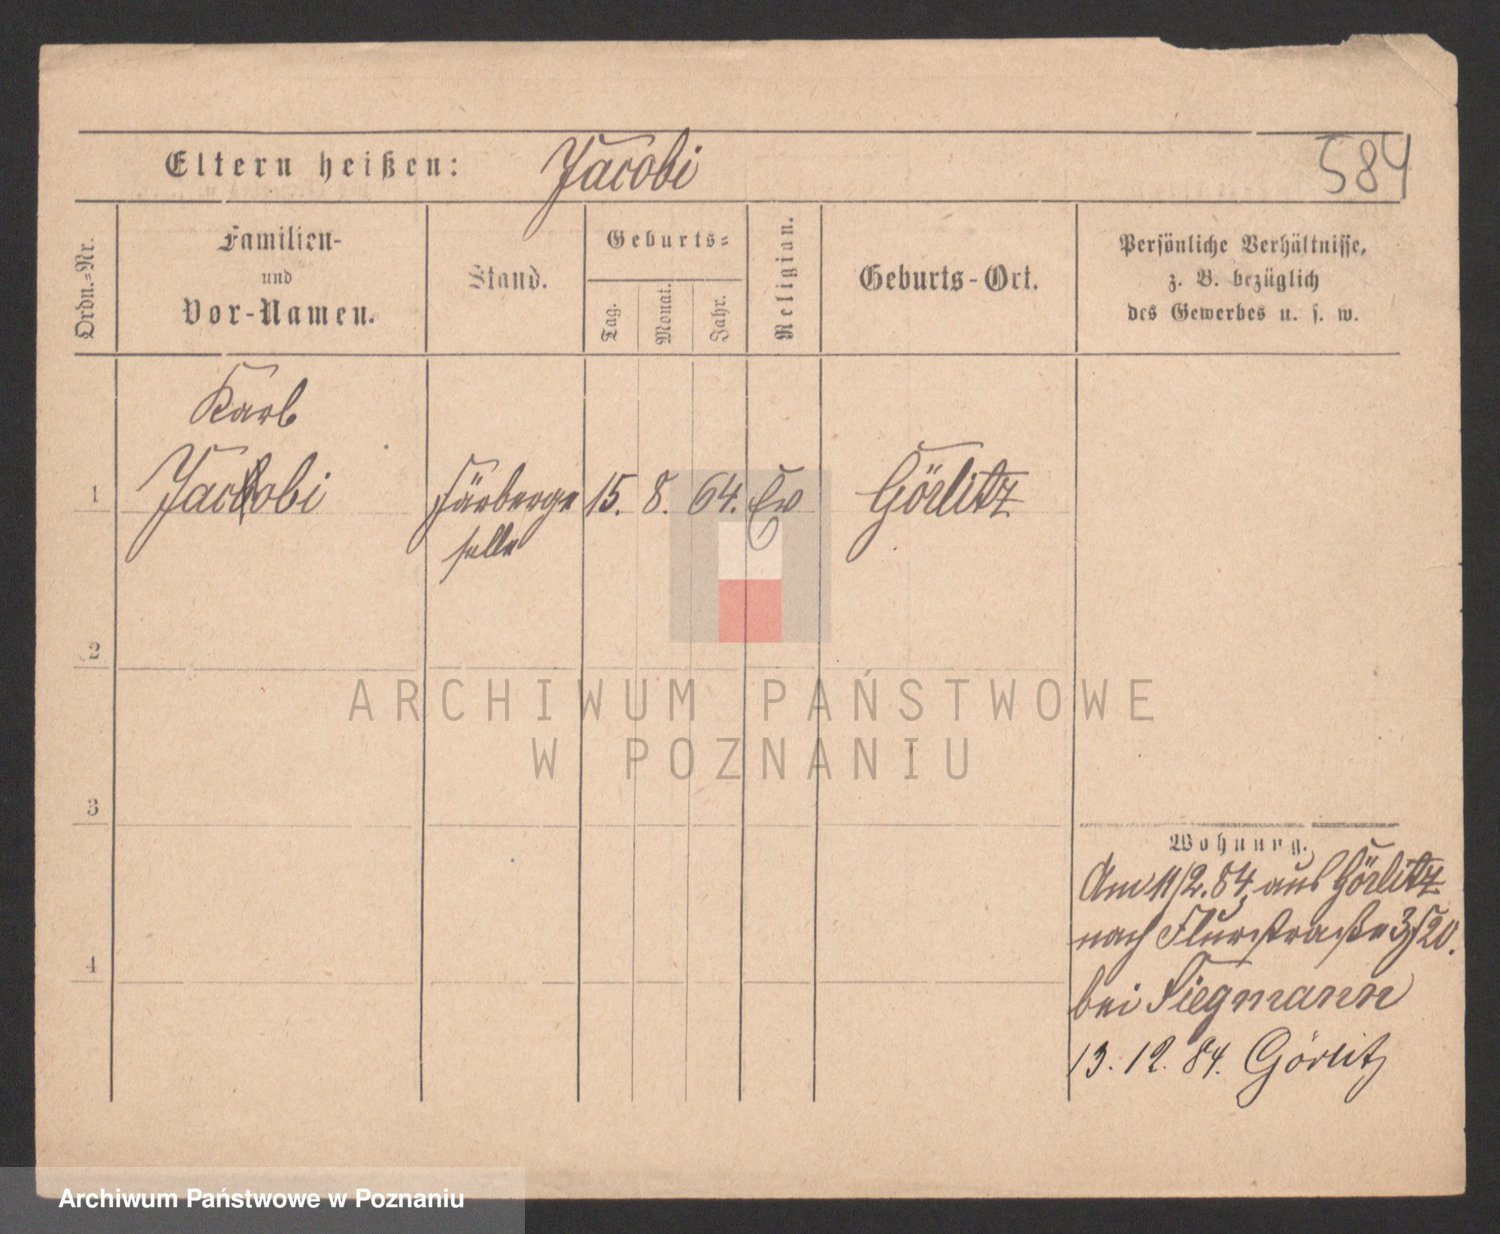 Eltern heißen: Jacobi
584
Ordn.-Nr.
Familien-
und
Vor-Namen.
Stand.
Geburts-
Tag.
Monat.
Jahr.
Religion.
Geburts-Ort.
Persönliche Verhältnisse,
z. B. bezüglich
des Gewerbes u. s. w.
Karl
1 Jacobi Färberge 15. 8. 64. Ev Görlitz
selle
2
3
4
ARCHIWUM PAŃSTWOWE
W POZNANIU
Wohnung.
Am 11/2. 84. aus Görlitz
nach Flurstraße 3/20.
bei Siegmann
13. 12. 84. Görlitz
Archiwum Państwowe w Poznaniu